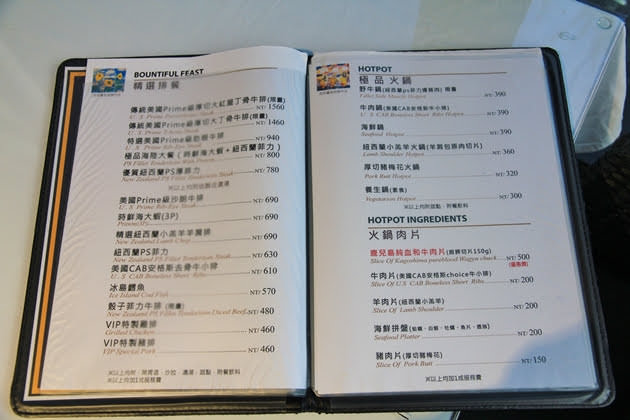 BOUNTIFUL FEAST
精選排餐
傳統美國Prime級厚切大紅屋丁骨牛排(限量) NT/ 1560
傳統美國Prime級厚切丁骨牛排(限量) NT/ 1460
U. S Prime T-bone Steak
特選美國Prime級肋眼牛排 NT/ 940
U. S Prime Rib-Eye Steak
極品海陸大餐(時鮮海大蝦+紐西蘭菲力) NT/ 800
PS Fillet Tenderloin With Prawn
優質紐西蘭PS厚菲力 NT/ 780
New Zealand PS Fillet Tenderloin Steak
美國Prime級沙朗牛排 NT/ 690
U. S Prime Rib-Eye Steak
時鮮海大蝦(3P) NT/ 690
Prawn(3P)
精選紐西蘭小羔羊羊排 NT/ 690
New Zealand Lamb Chop
紐西蘭PS菲力 NT/ 630
New Zealand PS Fillet Tenderloin Steak
美國CAB安格斯去骨牛小排 NT/ 610
U. S CAB Boneless Short Ribs
冰島鱈魚 NT/ 570
Ice Island Cod Fish
骰子菲力牛排(限量) NT/ 480
New Zealand PS Fillet Tenderloin Diced Beef
VIP特製雞排 NT/ 460
Grilled Chicken
VIP特製豬排 NT/ 460
VIP Special Pork
※以上均加1成服務費
HOTPOT
極品火鍋
野牛鍋(紐西蘭ps菲力邊條肉) 限量 NT/ 390
Fillet Side Muscle Hotpot
牛肉鍋(美國CAB安格斯牛小排) NT/ 390
U. S CAB Boneless Short Ribs Hotpot
海鮮鍋 NT/ 390
Seafood Hotpot
紐西蘭小羔羊火鍋(羊肩包原肉切片) NT/ 360
Lamb Shoulder Hotpot
厚切豬梅花火鍋 NT/ 320
Pork Butt Hotpot
養生鍋(素食) NT/ 300
Vegetarian Hotpot
※以上均附甜點、附餐飲料
HOTPOT INGREDIENTS
火鍋肉片
鹿兒島純血和牛肉片(肩胛切片150g) NT/ 500
Slice Of Kagoshima pureblood Wagyu chuck
牛肉片(美國CAB安格斯choice牛小排) NT/ 200
Slice Of U.S CAB Boneless Short Ribs
羊肉片(紐西蘭小羔羊) NT/ 200
Slice Of Lamb Shoulder
海鮮拼盤 NT/ 200
Seafood Platter
豬肉片(厚切豬梅花) NT/ 150
Slice Of Pork Butt
※以上均加1成服務費